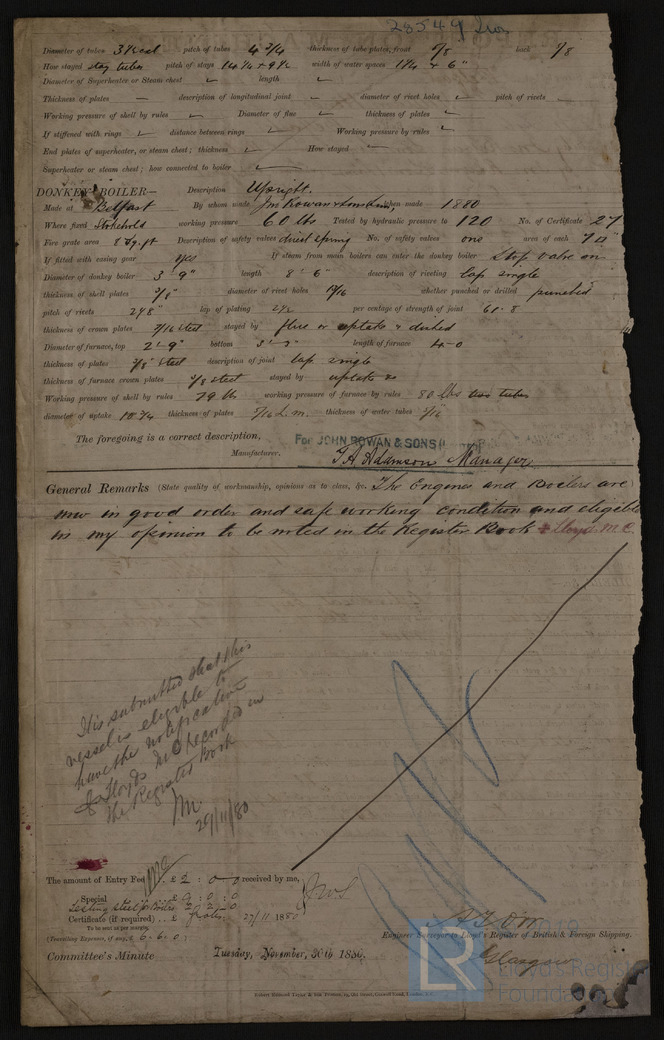 28549 Iron
Diameter of tubes 3 ½ext pitch of tubes 4 3/4 thickness of tube plates, front 5/8 back 7/8
How stayed stay tubes pitch of stays 14¼ x 9½ width of water spaces 1¼ & 6"
Diameter of Superheater or Steam chest length
Thickness of plates — description of longitudinal joint diameter of rivet holes pitch of rivets
Working pressure of shell by rules Diameter of flue thickness of plates
If stiffened with rings distance between rings Working pressure by rules
End plates of superheater, or steam chest; thickness How stayed
Superheater or steam chest; how connected to boiler
DONKEY BOILER— Description Upright.
Made at Belfast By whom made Jno Rowan & Sons Lim, when made 1880
Where fixed Stokehold working pressure 60 lbs Tested by hydraulic pressure to 120 No. of Certificate 27
Fire grate area 8 sq. ft Description of safety valves direct spring No. of safety valves one area of each 7 □"
If fitted with easing gear yes If steam from main boilers can enter the donkey boiler stop valve on
Diameter of donkey boiler 3' 9" length 8' 6" description of riveting lap single
thickness of shell plates 3/8" diameter of rivet holes 13/16 whether punched or drilled punched
pitch of rivets 2 1/8" lap of plating 2½ per centage of strength of joint 61.8
thickness of crown plates 7/16 steel stayed by flue or uptake & dished
Diameter of furnace, top 2'-9" bottom 3'-3" length of furnace 4-0
thickness of plates 3/8" steel description of joint lap single
thickness of furnace crown plates 3/8 steel stayed by uptake
Working pressure of shell by rules 79 lbs working pressure of furnace by rules 80 lbs two tubes
diameter of uptake 10 3/4 thickness of plates 5/16 L.m. thickness of water tubes 5/16
The foregoing is a correct description,
For JOHN ROWAN & SONS
Manufacturer. T. A. Adamson Manager
General Remarks (State quality of workmanship, opinions as to class, &c. The Engines and Boilers are
now in good order and safe working condition and eligible
in my opinion to be noted in the Register Book + Lloyd M.C.
It is submitted that this
vessel is eligible to
have the notification
Lloyds M C recorded in
the Register Book
29/11/80
The amount of Entry Fee .. £ 2 : 0 - 0 received by me,
Special .. £ 9 : 0 : 0
Testing steel for Boilers 2 : 2 : 0
Certificate (if required) .. £ gratis 27/11 1880
To be sent as per margin.
(Travelling Expenses, if any, £ 0 . 6 . 0 .)
Engineer Surveyor to Lloyd's Register of British & Foreign Shipping.
Glasgow
Committee's Minute Tuesday, November, 30th 1880.
LR
Lloyd's Register
Foundation